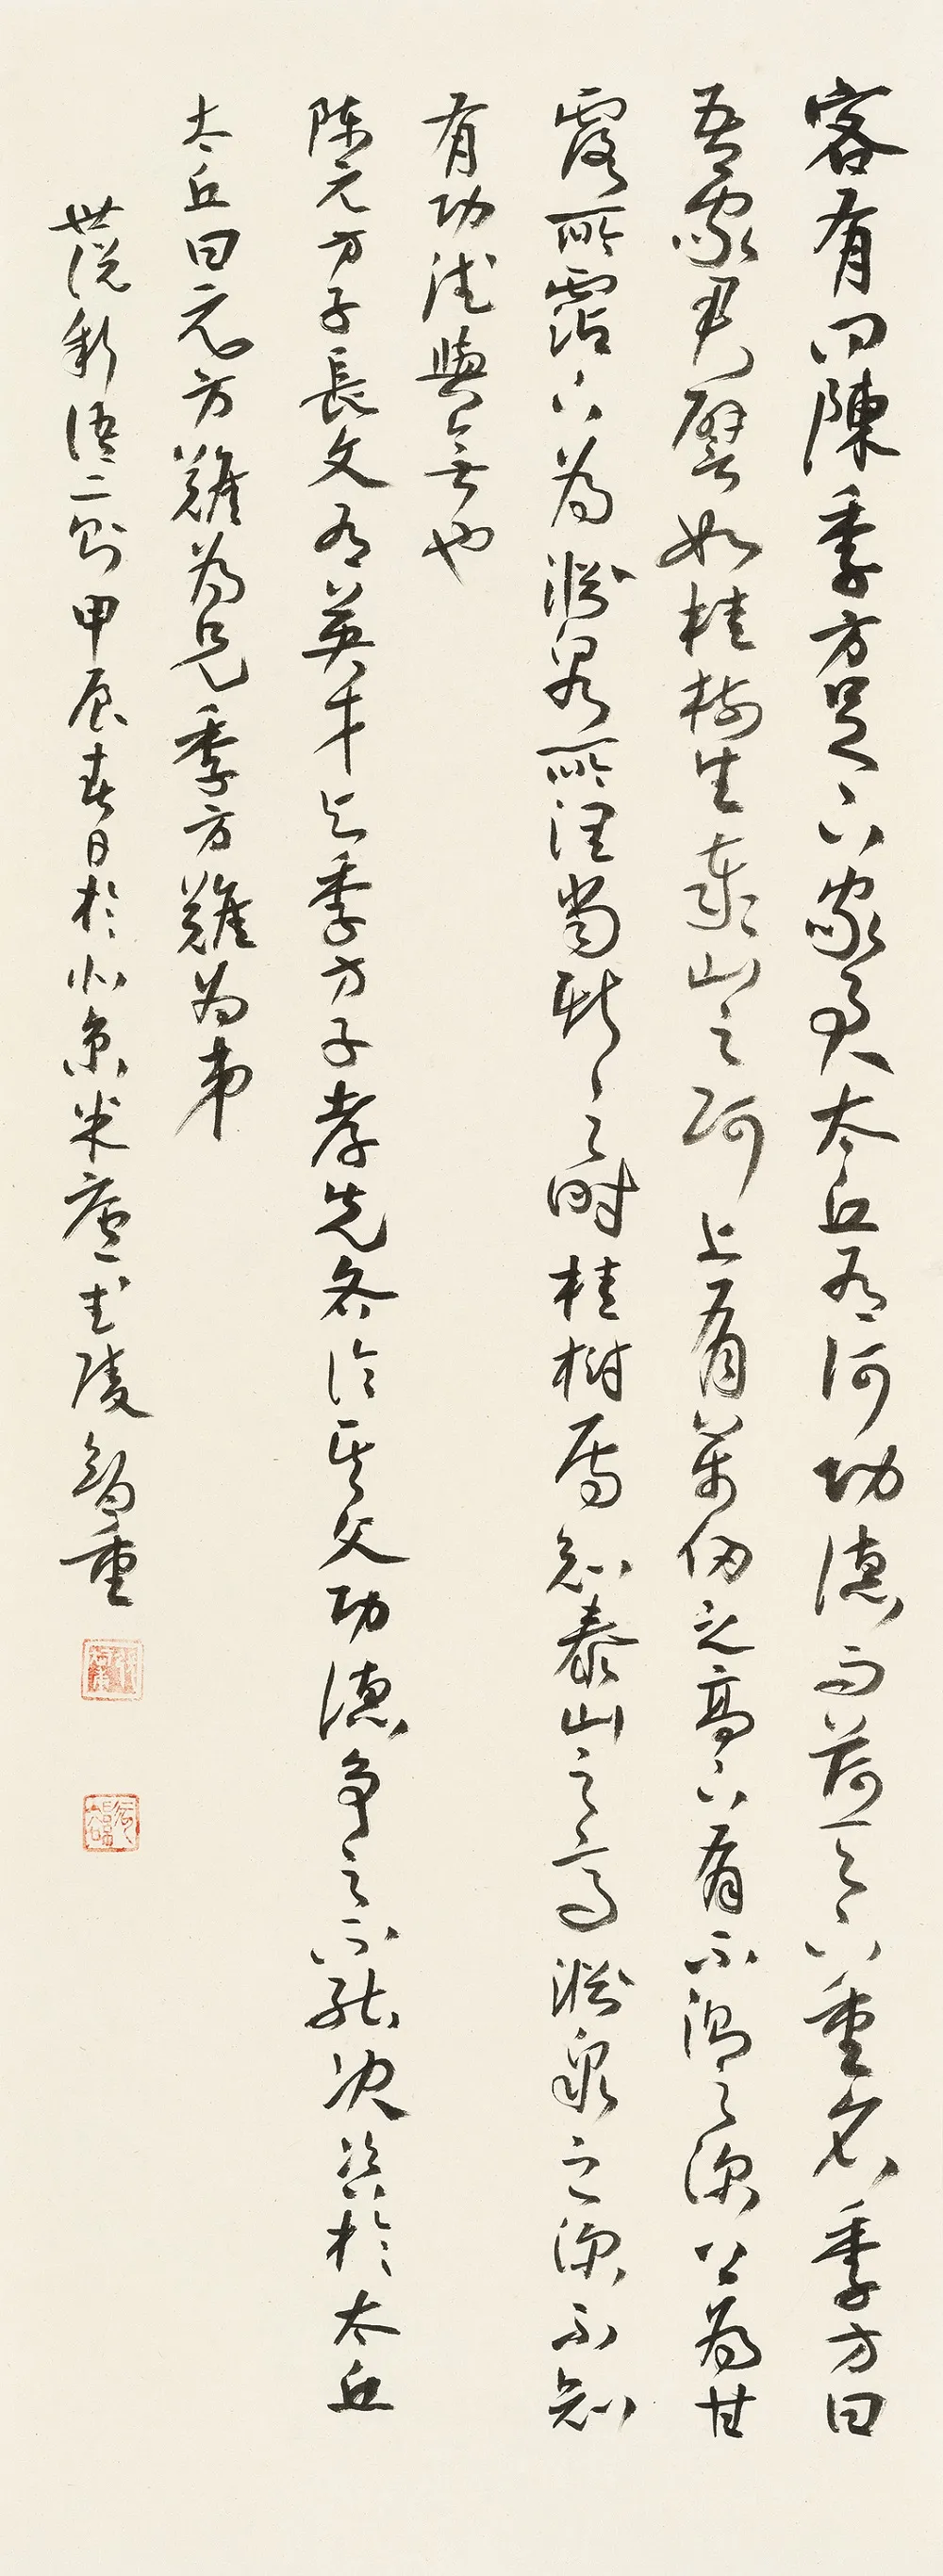 客有问陳季方足下家君太丘有何功德而荷天下重名季方曰
吾家君譬如桂樹生泰山之阿上有萬仞之高下有不測之深上為甘
露所霑下為淵泉所潤當斯之時桂樹焉知泰山之高淵泉之深不知
有功德與無也
陳元方子長文有英才与季方子孝先各論其父功德爭之不能決咨於太丘
太丘曰元方難為兄季方難為弟
世说新语二则甲辰春日於北京米庵武陵智重